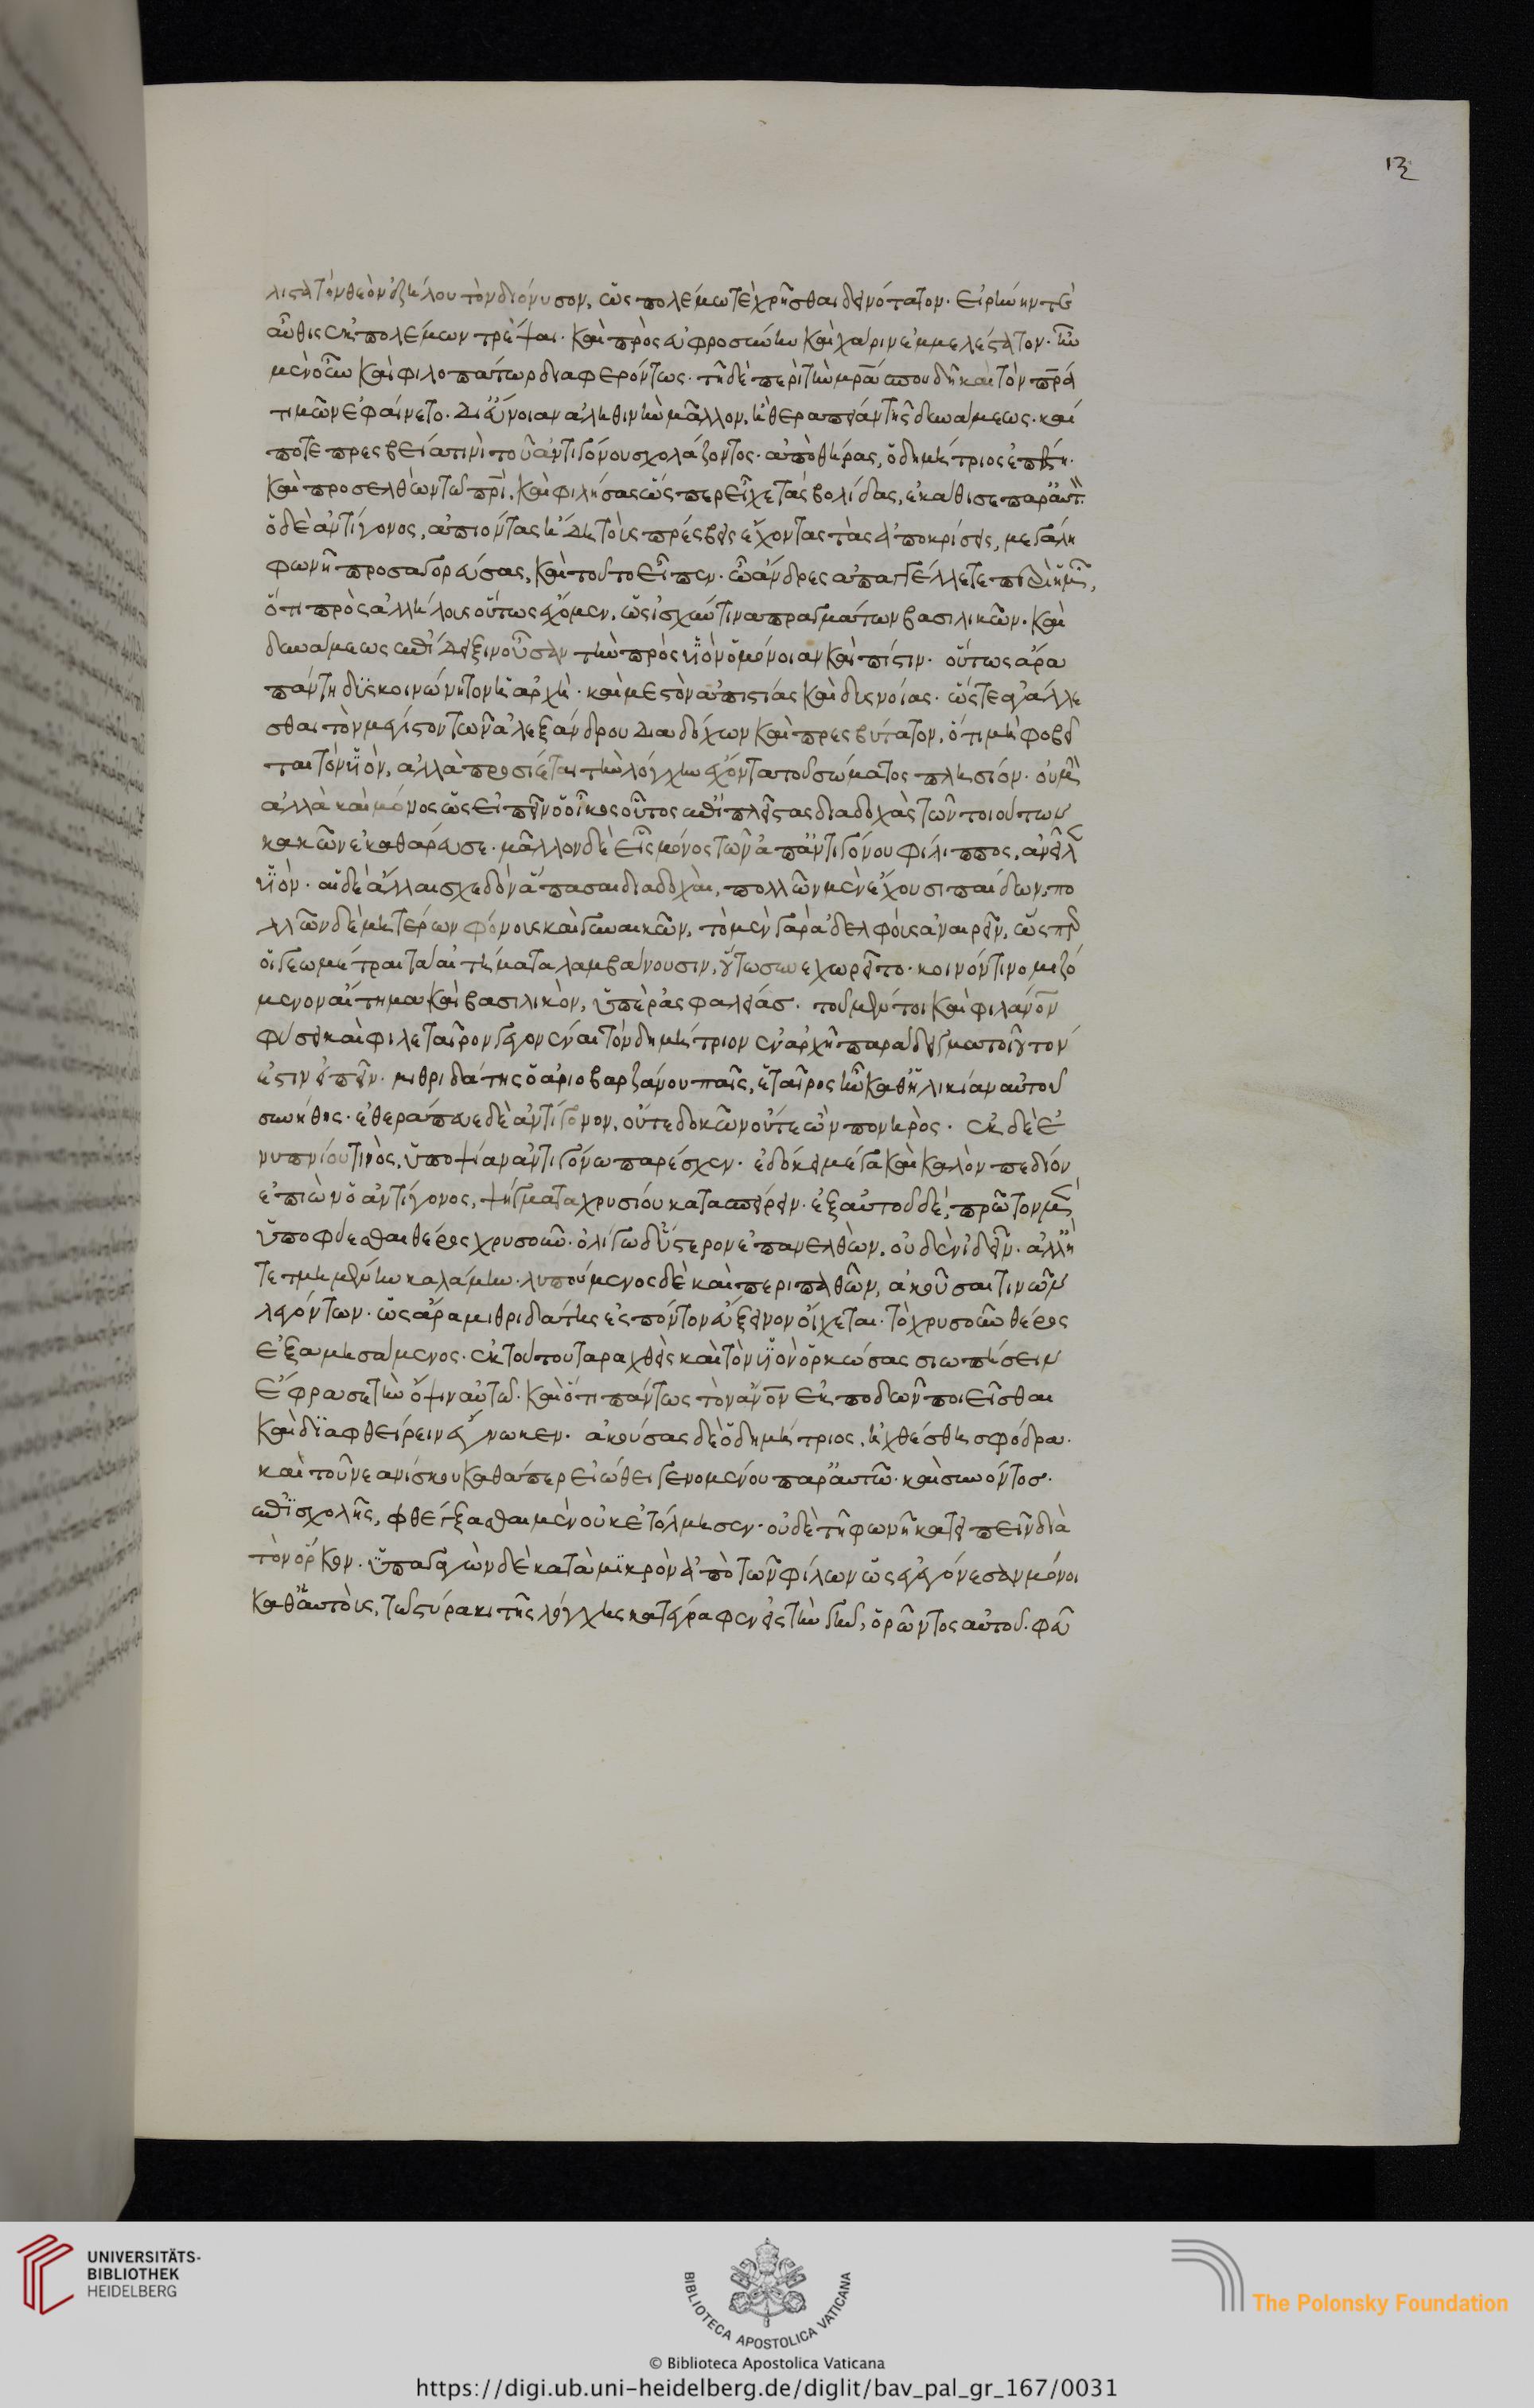 13
λιστα τὸν θεὸν ἐζήλου τὸν διόνυσον, ὡς πολέμω τὲ χρῆσθαι δεινότατον. εἰρήνην τὲ
αὖθις ἐκ πολέμων τρέψαι. καὶ πρὸς εὐφροσύνην καὶ χάριν ἐμμελέστατον. ἦν
μὲν οὖν καὶ φιλοπάτωρ διαφερόντως. τῆ δὲ περὶ τὴν μρα σπουδῆ καὶ τὸν πρα
τιμῶν ἐφαίνετο. δι εὔνοιαν ἀληθινὴν μᾶλλον, ἢ θεραπείαν τῆς δυνάμεως. καί
ποτε πρεσβεία τινὶ τοῦ ἀντιγόνου σχολάζοντος. ἀπὸ θήρας, ὁ δημήτριος ἐπέστη.
καὶ προσελθὼν τῶ πρι, καὶ φιλήσας ὥσπερ εἶχε τὰς βολίδας, ἐκάθισε παρ αὐτ
ὁ δὲ ἀντίγονος, ἀπιόντας ἤδη τοὺς πρέσβεις ἔχοντας τὰς ἀποκρίσεις, μεγάλη
φωνῆ προσαγορεύσας, καὶ τοῦτο εἶπεν. ὦ ἄνδρες ἀπαγγέλλετε περὶ ἡμῶν,
ὅτι πρὸς ἀλλήλους οὕτως ἔχομεν. ὡς ἰσχύν τινα πραγμάτων βασιλικῶν. καὶ
δυνάμεως ἐπίδειξιν οὖσαν τὴν πρὸς υἱὸν ὁμόνοιαν καὶ πίστιν. οὕτως ἄρα
πάντη δυσκοινώνητον ἡ ἀρχὴ. καὶ μεστὸν ἀπιστίας καὶ δυσνοίας. ὥστε ἀγάλλε
σθαι τὸν μέγιστον τῶν ἀλεξάνδρου διαδόχων καὶ πρεσβύτατον, ὅτι μὴ φοβεῖ
ται τὸν υἱὸν, ἀλλὰ προσίεται τὴν λόγχην ἔχοντα τοῦ σώματος πλησίον. οὐ μὴν
ἀλλὰ καὶ μόνος ὡς εἰπεῖν ὁ οἶκος οὗτος ἐπὶ πλείστας διαδοχὰς τῶν τοιούτων
κακῶν ἐκαθάρευσε. μᾶλλον δὲ εἷς μόνος τῶν ἀπ ἀντιγόνου φίλιππος, ἀνεῖλ
υἱὸν. αἱ δὲ ἄλλαι σχεδὸν ἅπασαι διαδοχαὶ, πολλῶν μὲν ἔχουσι παίδων, πο
λλῶν δὲ μητέρων φόνους καὶ γυναικῶν, τὸ μὲν γὰρ ἀδελφοὺς ἀναιρεῖν, ὥσπερ
οἱ γεωμέτραι τὰ αἰτήματα λαμβάνουσιν, οὕτω συνεχωρεῖτο. κοινόν τι νομιζό
μενον αἴτημα καὶ βασιλικὸν, ὑπὲρ ἀσφαλείας. τοῦ μέντοι καὶ φιλάνον
φύσει καὶ φιλεταῖρον γεγονέναι τὸν δημήτριον ἐν ἀρχῆ παράδειγμα τοιοῦτόν
ἐστιν εἰπεῖν. μιθριδάτης ὁ ἀριοβαρζάνου παῖς, ἑταῖρος ἦν καθ ἡλικίαν αὐτοῦ
συνήθης. ἐθεράπευε δὲ ἀντίγονον, οὔτε δοκῶν οὔτε ὢν πονηρὸς. ἐκ δὲ ἐ
νυπνίου τινὸς, ὑποψίαν ἀντιγόνω παρέσχεν. ἐδόκει μέγα καὶ καλὸν πεδίον
ἐπιὼν ὁ ἀντίγονος, ψήγματα χρυσίου κατασπείρειν. ἐξ αὐτοῦ δὲ, πρῶτον μὲν
ὑποφύεσθαι θέρος χρυσοῦν. ὀλίγω δ ὕστερον ἐπανελθὼν, οὐδὲν ἰδεῖν. ἀλλ ἢ
τετμημένην καλάμην. λυπούμενος δὲ καὶ περιπαθῶν, ἀκοῦσαι τινῶν
λεγόντων. ὡς ἄρα μιθριδάτης εἰς πόντον εὔξεινον οἴχεται. τὸ χρυσοῦν θέρος
ἐξαμησάμενος. ἐκ τούτου ταραχθεὶς καὶ τὸν υἱὸν ὁρκώσας σιωπήσειν
ἔφρασε τὴν ὄψιν αὐτῶ. καὶ ὅτι πάντως τὸν ἄνον ἐκποδὼν ποιεῖσθαι
καὶ διαφθείρειν ἔγνωκεν. ἀκούσας δὲ ὁ δημήτριος, ἠχθέσθη σφόδρα.
καὶ τοῦ νεανίσκου καθάπερ εἰώθει γενομένου παρ αὐτῶ. καὶ συνόντος.
ἐπὶ σχολῆς, φθέγξασθαι μὲν οὐκ ἐτόλμησεν. οὐδὲ τῆ φωνῆ κατειπεῖν διὰ
τὸν ὅρκον. ὑπαγαγὼν δὲ κατὰ μικρὸν ἀπὸ τῶν φίλων ὡς ἐγεγόνεσαν μόνοι
καθ αὑτοὺς, τῶ στύρακι τῆς λόγχης κατέγραφεν εἰς τὴν γῆν, ὁρῶντος αὐτοῦ. φεῦ
UNIVERSITÄTS-
BIBLIOTHEK
HEIDELBERG
BIBLIOTECA APOSTOLICA VATICANA
The Polonsky Foundation
© Biblioteca Apostolica Vaticana
https://digi.ub.uni-heidelberg.de/diglit/bav_pal_gr_167/0031